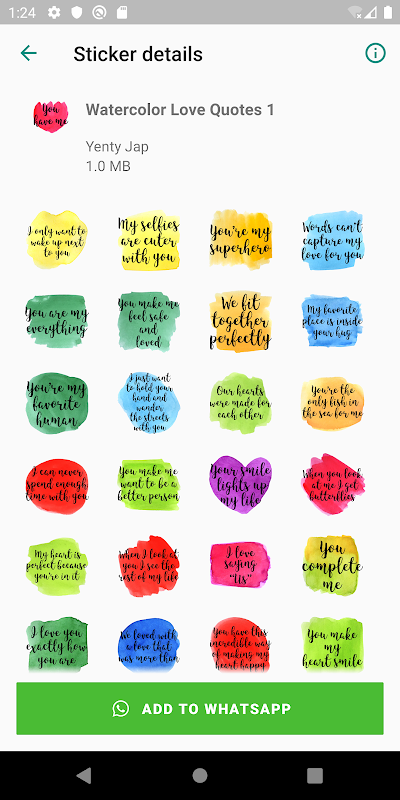 1:24
Sticker details
You
have me
Watercolor Love Quotes 1
Yenty Jap
1.0 MB
I only want to
wake up next
to you
My selfies
are cuter
with you
You're my
superhero
Words can't
capture my
love for you
You are my
everything
You make me
feel safe
and
loved
We fit
together
perfectly
My favorite
place is inside
your hug
You're my
favorite
human
I just want
to hold your
hand and
wander
the streets
with you
Our hearts
were made for
each other
You're the
only fish in
the sea for me
I can never
spend enough
time with you
You make me
want to be a
better person
Your smile
lights up
my life
When you look
at me I get
butterflies
My heart is
perfect because
you're in it
When I look at
you I see the
rest of my life
I love
saying
"Us"
You
complete
me
I love you
exactly how
you are
We loved with
a love that
was more than
You have this
incredible way
of making my
heart happy
You make
my
heart smile
ADD TO WHATSAPP